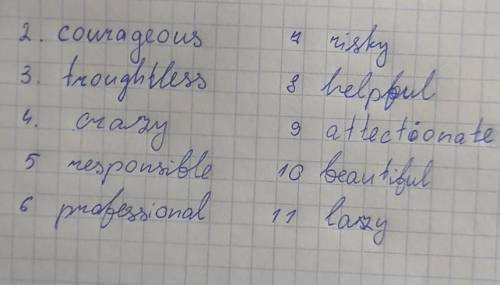 2. courageous
3. troughtless
4. crazy
5 responsible
6 professional
7 risky
8 helpful
9 attectoonate
10 beautiful
11 lazy